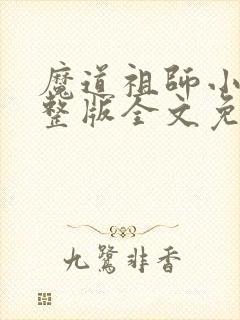 魔道祖师小
整版全文免
九鹭非香